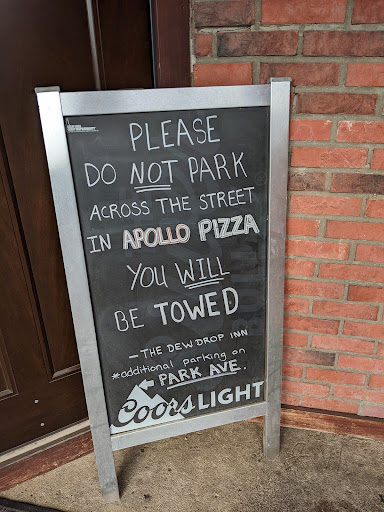 PLEASE
DO NOT PARK
ACROSS THE STREET
IN APOLLO PIZZA
YOU WILL
BE TOWED
— THE DEW DROP INN
*additional parking on
← PARK AVE.
Coors LIGHT